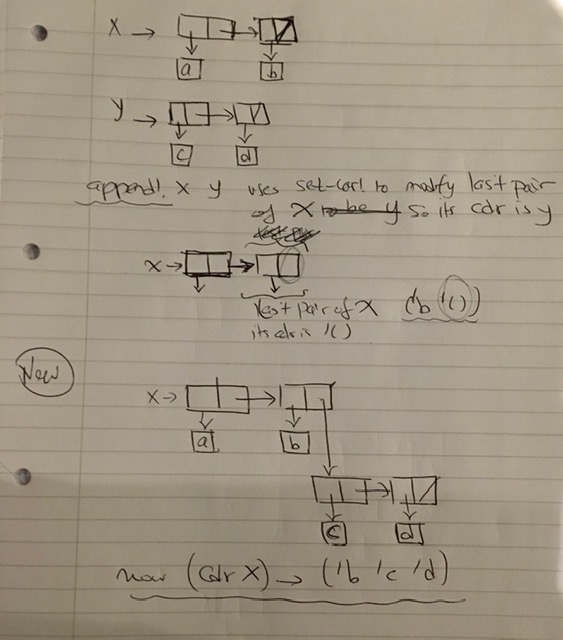 x →
a b
y →
c d
append! x y uses set-cdr! to modify last pair
of x to be y so its cdr is y
x →
last pair of x ('b '())
its cdr is '()
New
x →
a b
c d
now (cdr x) → ('b 'c 'd)